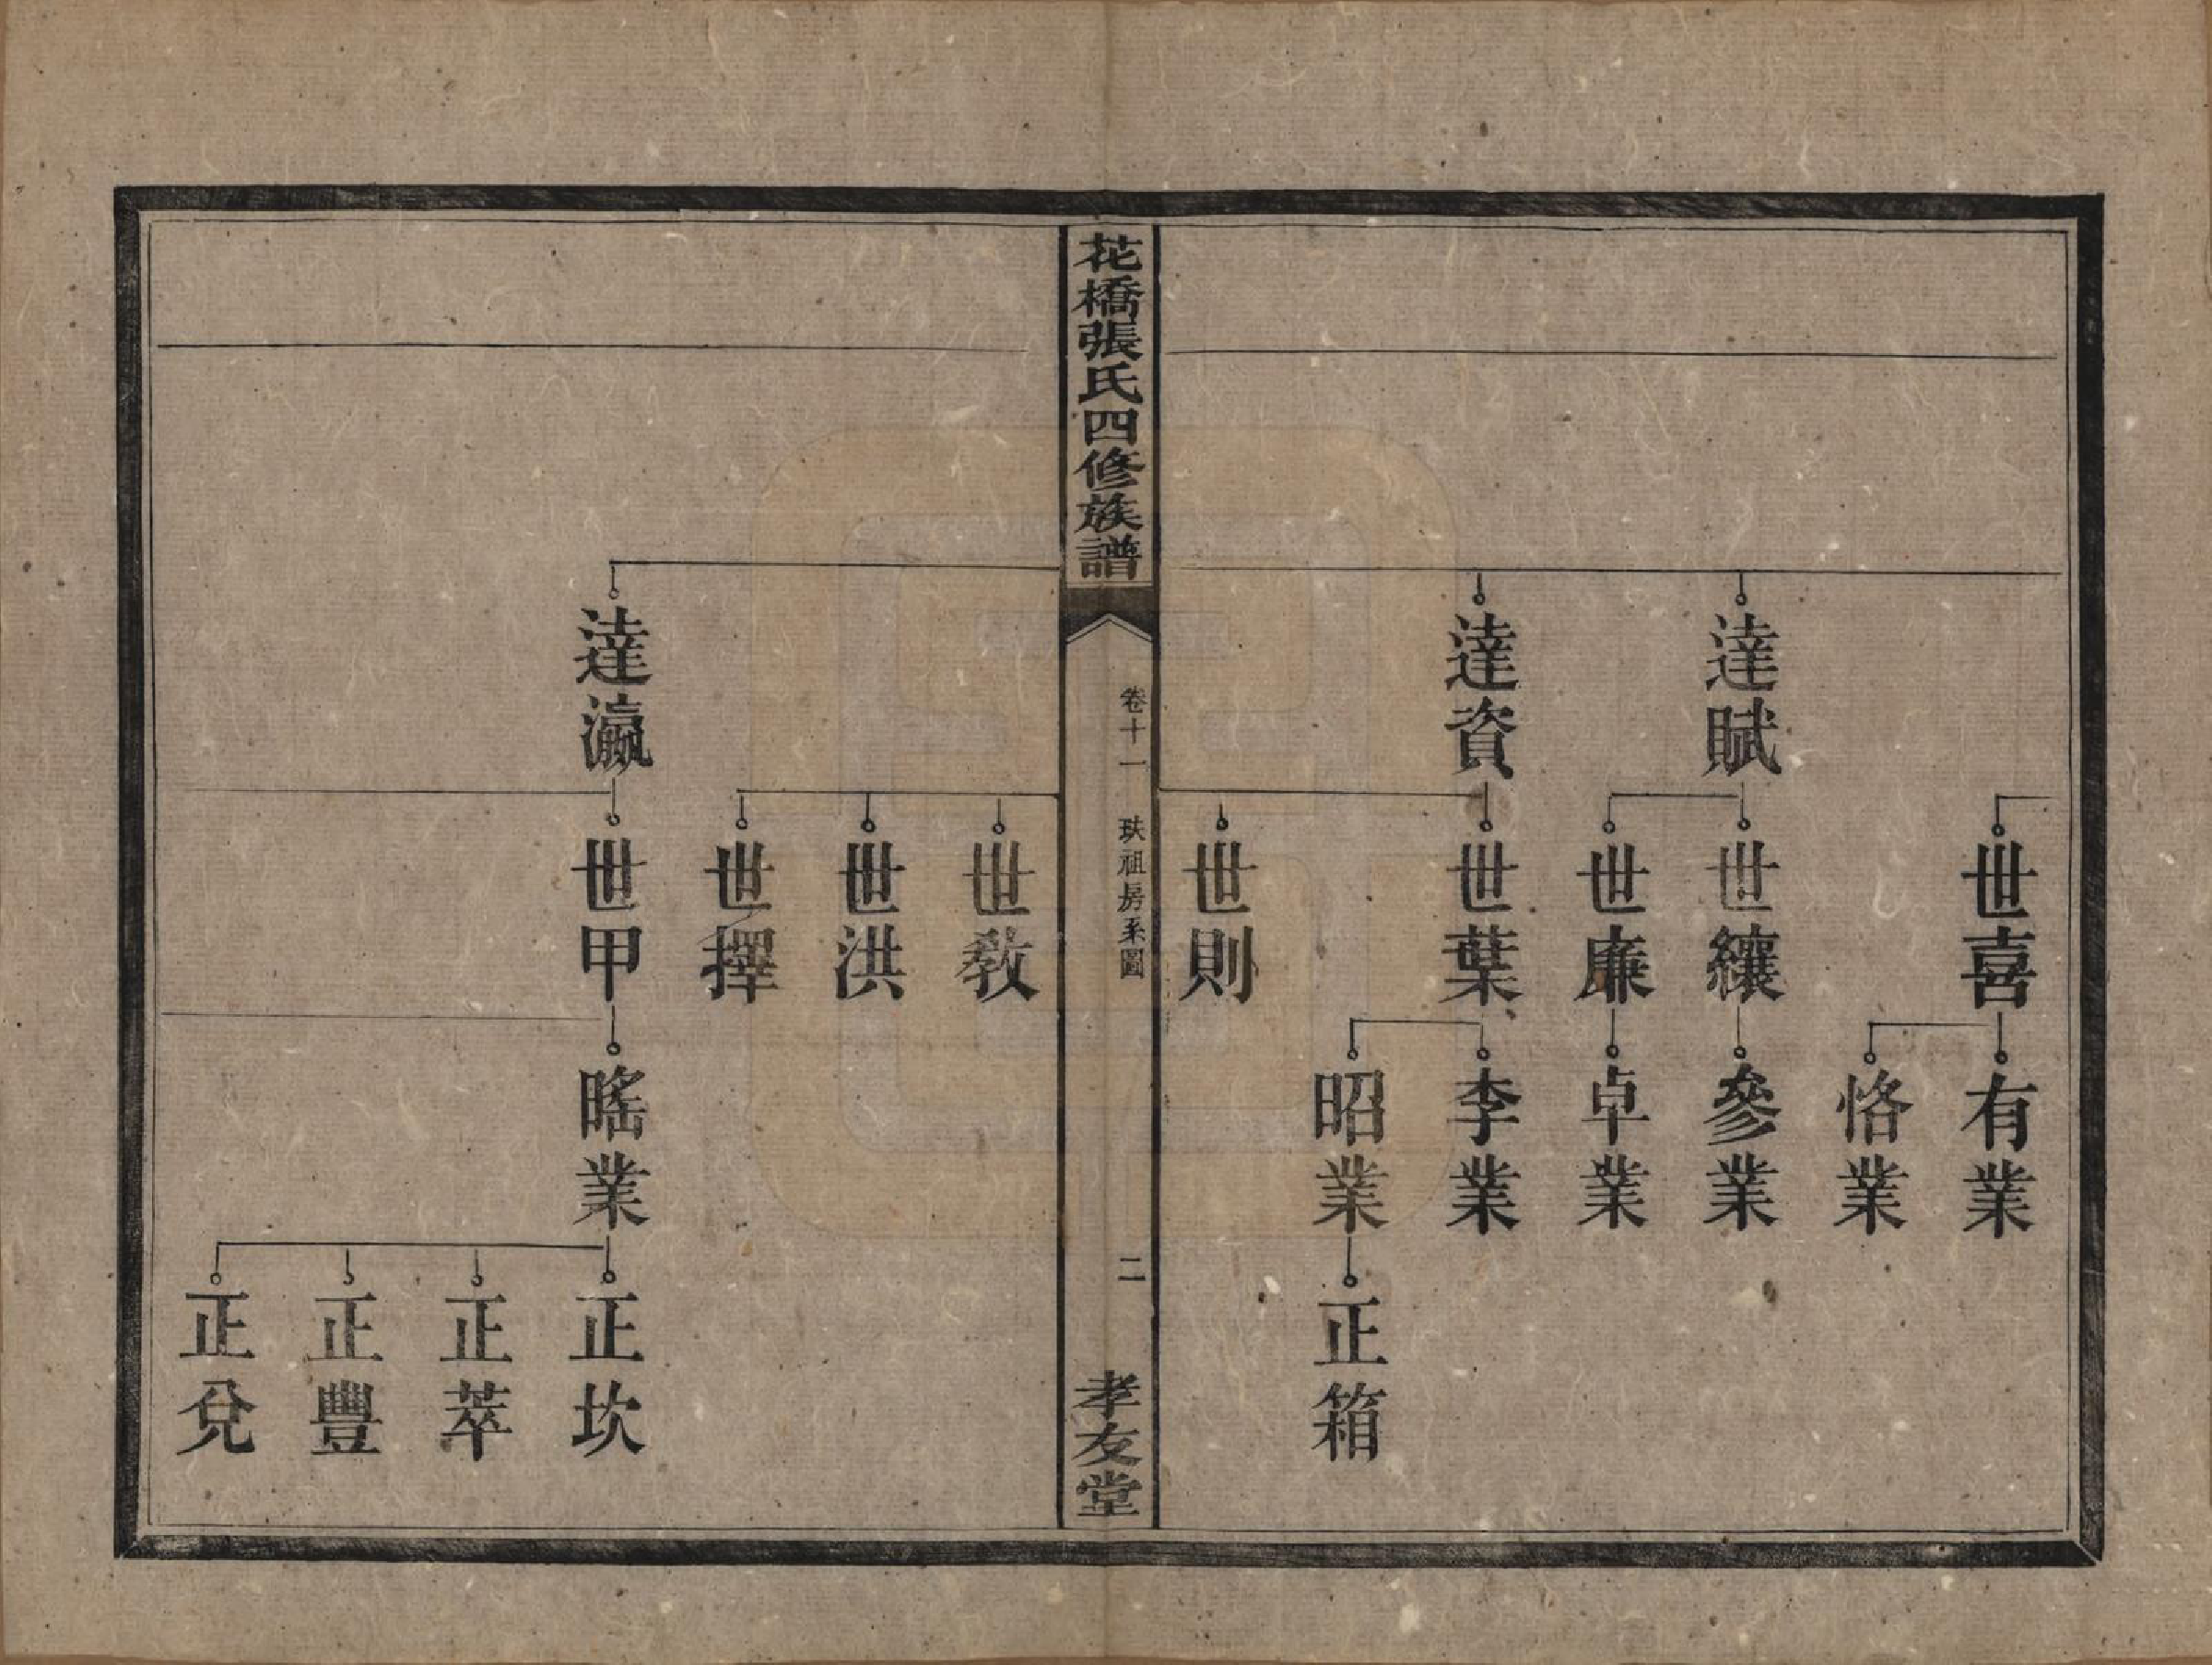 世喜
有業
恪業
達賦
世纕
參業
世廉
卓業
達資
世葉
李業
昭業
正箱
世則
花橋張氏四修族譜
卷十一
玞祖房系圖
二
孝友堂
世教
世洪
世擇
達瀛
世甲
暚業
正坎
正萃
正豐
正兌